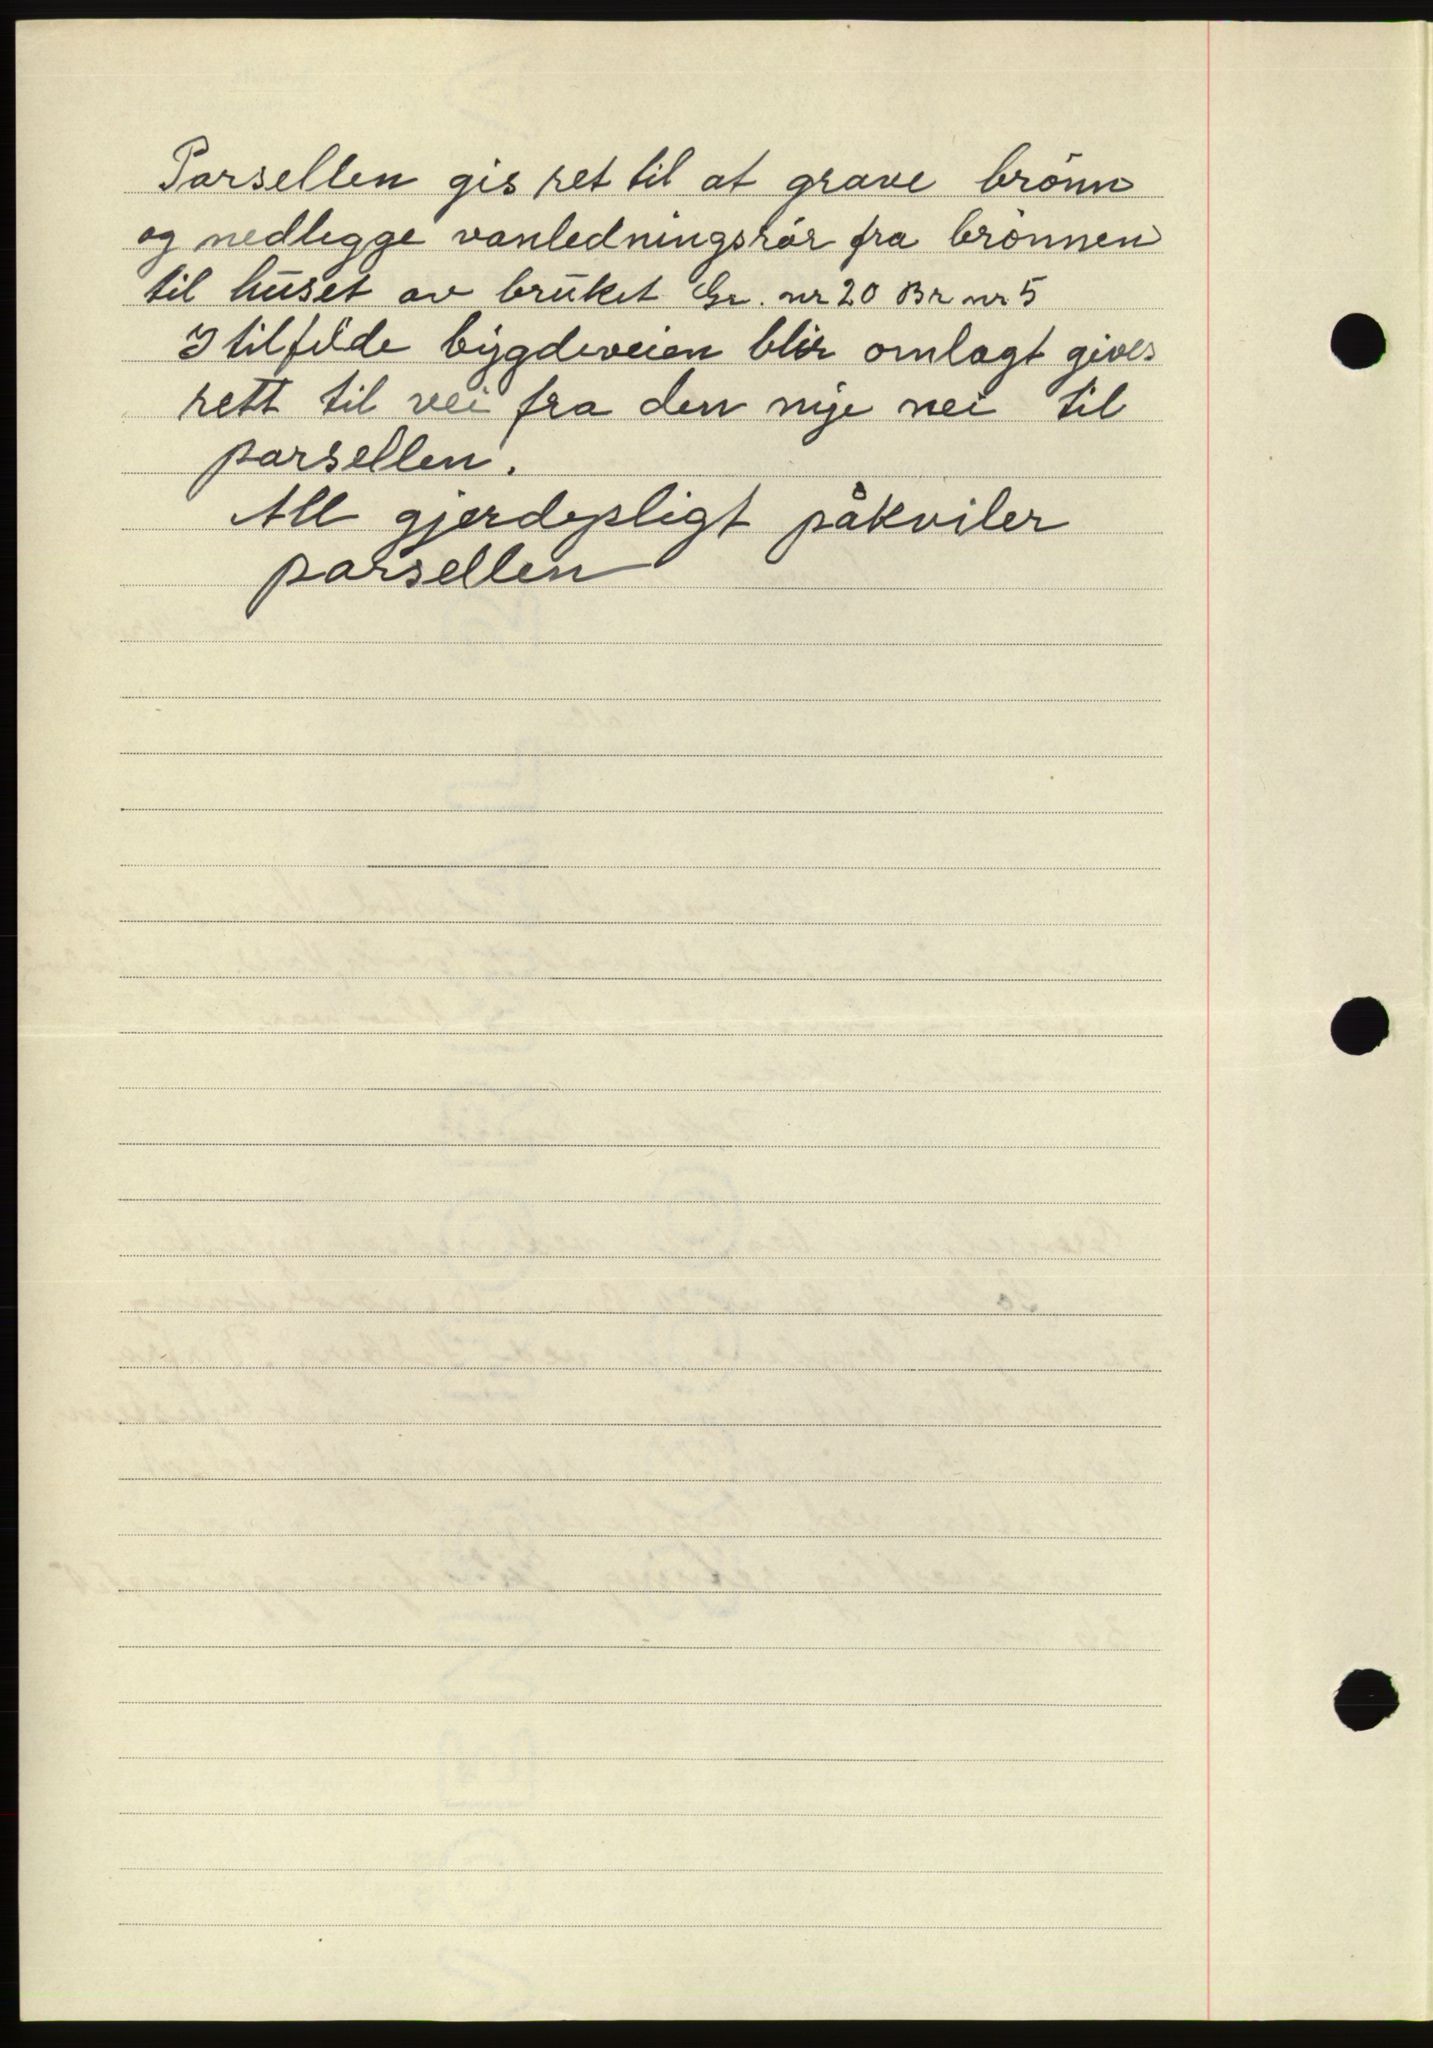 Parsellen gis ret til at grave brönn
og nedlegge vanledningsrör fra brönnen
til huset av bruket Gr. nr 20 Br nr 5
I tilfelde bygdeveien blir omlagt gives
rett til vei fra den nye vei til
parsellen.
All gjerdepligt påkviler
parsellen